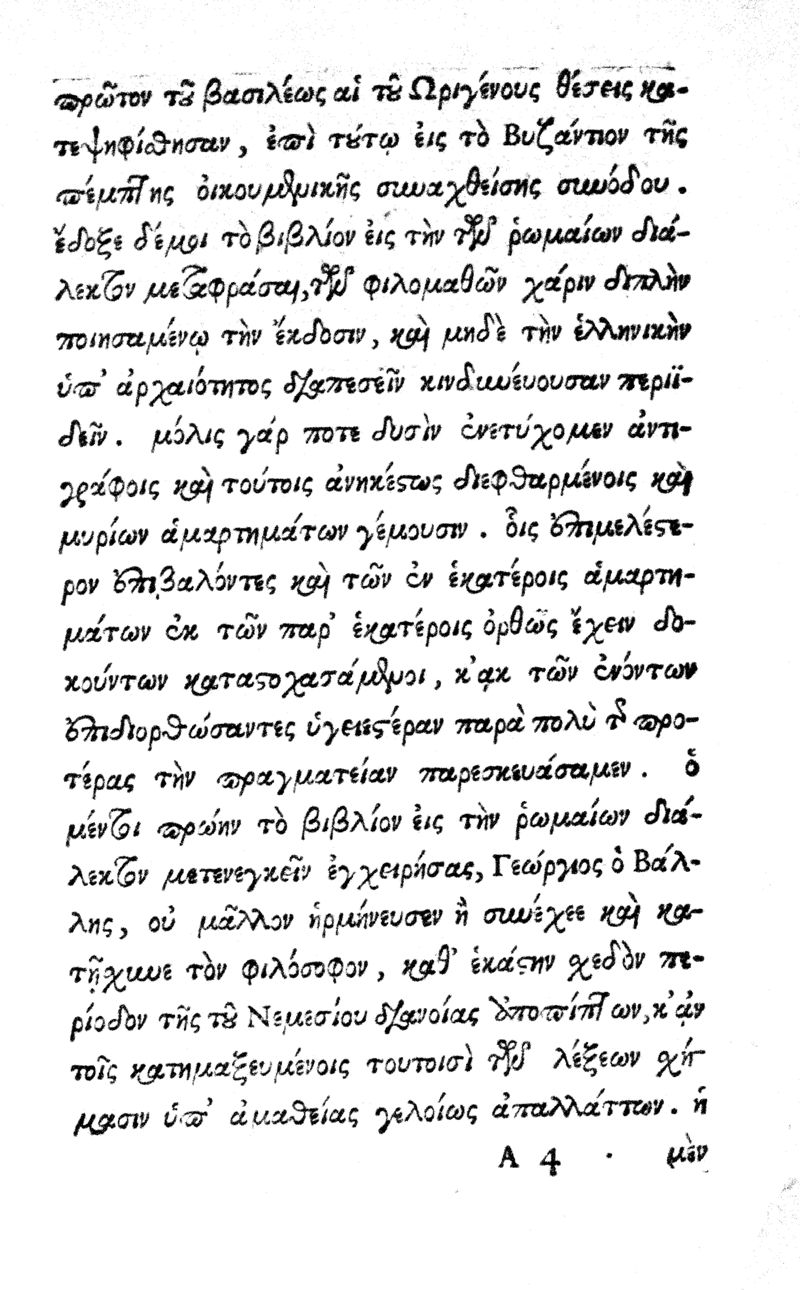 πρῶτον τοῦ βασιλέως αἱ τοῦ Ὠριγένους θέσεις κα-
τεψηφίσθησαν, ἐπὶ τούτῳ εἰς τὸ Βυζάντιον τῆς
πέμπτης οἰκουμενικῆς συναχθείσης συνόδου.
ἔδοξε δέ μοι τὸ βιβλίον εἰς τὴν τῶν ῥωμαίων διά-
λεκτον μεταφράσαι, τῶν φιλομαθῶν χάριν διπλὴν
ποιησαμένῳ τὴν ἔκδοσιν, καὶ μηδὲ τὴν ἑλληνικὴν
ὑπ' ἀρχαιότητος διαπεσεῖν κινδυνεύουσαν περιϊ-
δεῖν. μόλις γάρ ποτε δυσὶν ἐνετύχομεν ἀντι-
γράφοις καὶ τούτοις ἀνηκέστως διεφθαρμένοις καὶ
μυρίων ἁμαρτημάτων γέμουσιν. οἷς ἐπιμελέστε-
ρον ἐπιβαλόντες καὶ τῶν ἐν ἑκατέροις ἁμαρτη-
μάτων ἐκ τῶν παρ' ἑκατέροις ὀρθῶς ἔχειν δο-
κούντων καταστοχασάμενοι, κᾀκ τῶν ἐνόντων
ἐπιδιορθώσαντες ὑγειεστέραν παρὰ πολὺ τῆς προ-
τέρας τὴν πραγματείαν παρεσκευάσαμεν. ὁ
μέντοι πρώην τὸ βιβλίον εἰς τὴν ῥωμαίων διά-
λεκτον μετενεγκεῖν ἐγχειρήσας, Γεώργιος ὁ Βάλ-
λης, οὐ μᾶλλον ἡρμήνευσεν ἢ συνέχεε καὶ κα-
τῄσχυνε τὸν φιλόσοφον, καθ' ἑκάστην σχεδὸν πε-
ρίοδον τῆς τοῦ Νεμεσίου διανοίας ὑποπίπτων, κᾀν
τοῖς κατημαξευμένοις τουτοισὶ τῶν λέξεων σχή-
μασιν ὑπ' ἀμαθείας γελοίως ἀπαλλάττων. ἡ
A 4 . μὲν